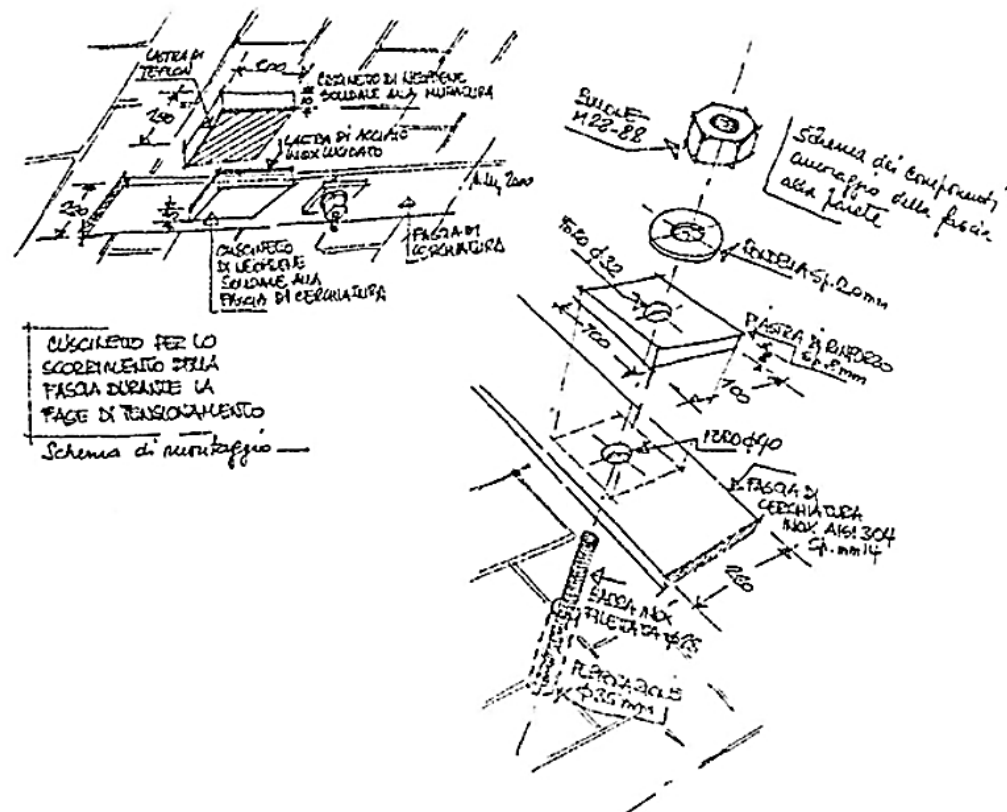 LASTRA DI
TEFLON
200
CUSCINETTO DI NEOPRENE
SOLIDALE ALLA MURATURA
LASTRA DI ACCIAIO
INOX LUCIDATO
CUSCINETTO
DI NEOPRENE
SOLIDALE ALLA
FASCIA DI CERCHIATURA
FASCIA DI
CERCHIATURA
CUSCINETTO PER LO
SCORRIMENTO DELLA
FASCIA DURANTE LA
FASE DI TENSIONAMENTO
Schema di montaggio
Schema dei componenti
ancoraggio della fascia
alla parete
RONDELLA Sp. 20mm
FORO
100
PIASTRA DI RINFORZO
Sp. 8 mm
100
FORO ϕ40
FASCIA DI
CERCHIATURA
INOX. AISI 304
Sp. mm 14
BARRA INOX
FILETTATA
PERFORAZIONE
ϕ35 mm